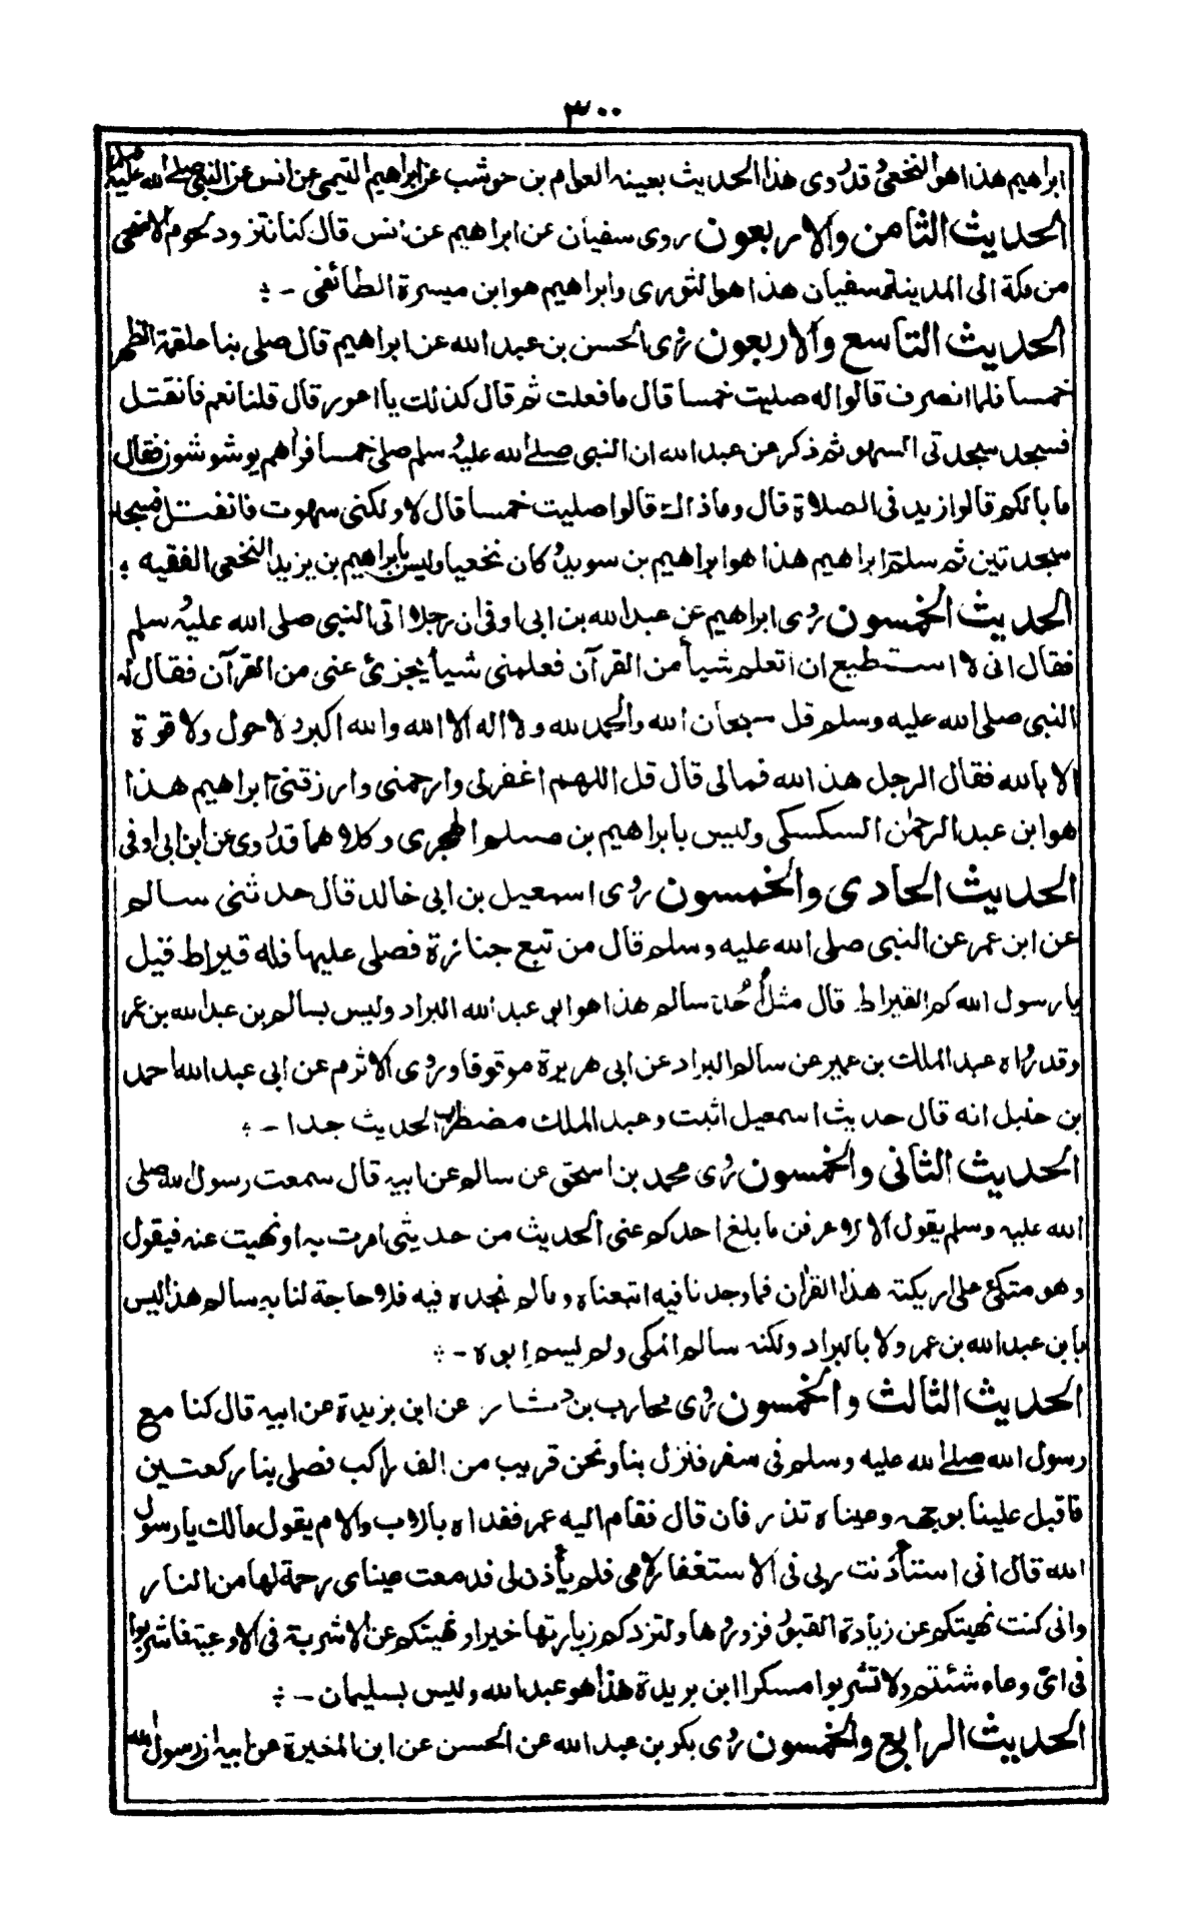 ٣٠٠
ابراهيم هذا هو النخعي وقد روى هذا الحديث بعينه العوام بن حوشب عن ابراهيم التيمي عن انس عن النبي صلى الله عليه
الحديث الثامن والاربعون روى سفيان عن ابراهيم عن انس قال كنا نتزود لحوم الاضحى
من مكة الى المدينة سفيان هذا هو الثوري وابراهيم هو ابن ميسرة الطائفى -
الحديث التاسع والاربعون روى الحسن بن عبد الله عن ابراهيم قال صلى بنا علقمة الظهر
خمسا فلما انصرف قالوا له صليت خمسا قال ما فعلت ثم قال كذلك يا اعور قال قلنا نعم فانفتل
فسجد سجدتى السهو ثم ذكر عن عبد الله ان النبي صلى الله عليه سلم صلى خمسا فراهم يوشوشون فقال
ما بالكم قالوا ازيد فى الصلاة قال وما ذاك قالوا صليت خمسا قال لا ولكنى سهوت فانفتل فسجد
سجدتين ثم سلم ابراهيم هذا هو ابراهيم بن سويد وكان نخعيا وليس بابراهيم بن يزيد النخعى الفقيه
الحديث الخمسون روى ابراهيم عن عبد الله بن ابى اوفى ان رجلا اتى النبى صلى الله عليه سلم
فقال انى لا استطيع ان اتعلم شيأ من القرآن فعلمنى شيأ يجزئ عنى من القرآن فقال له
النبى صلى الله عليه وسلم قل سبحان الله والحمد لله ولا اله الا الله والله اكبر ولا حول ولا قوة
الا بالله فقال الرجل هذا لله فمالى قال قل اللهم اغفر لى وارحمنى وارزقنى ابراهيم هذا
هو ابن عبد الرحمٰن السكسكى وليس بابراهيم بن مسلم الهجرى وكلاهما قد روى عن ابن ابى اوفى
الحديث الحادى والخمسون روى اسمعيل بن ابى خالد قال حدثنى سالم
عن ابن عمر عن النبى صلى الله عليه وسلم قال من تبع جنازة فصلى عليها فله قيراط قيل
يا رسول الله كم القيراط قال مثل اُحُد سالم هذا هو ابو عبد الله البراد وليس بسالم بن عبد الله بن عمر
وقد رواه عبد الملك بن عمير عن سالم البراد عن ابى هريرة موقوفا وروى الاثرم عن ابى عبد الله احمد
بن حنبل انه قال حديث اسمعيل اثبت وعبد الملك مضطرب الحديث جدا -
الحديث الثانى والخمسون روى محمد بن اسحق عن سالم عن ابيه قال سمعت رسول الله صلى
الله عليه وسلم يقول الا لا اعرفن ما بلغ احدكم عنى الحديث من حديثى امرت به او نهيت عنه فيقول
وهو متكئ على اريكته هذا القرٰان فما وجدنا فيه اتبعناه وما لم نجده فيه فلا حاجة لنا به سالم هذا ليس
بابن عبد الله بن عمر ولا بالبراد ولكنه سالم المكى ولم يسم ابوه -
الحديث الثالث والخمسون روى محارب بن دثار عن ابن بريدة عن ابيه قال كنا مع
رسول الله صلى الله عليه وسلم فى سفر فنزل بنا ونحن قريب من الف راكب فصلى بنا ركعتين
فاقبل علينا بوجهه وعيناه تذرفان قال فقام اليه عمر ففداه بالاب والام يقول مالك يا رسول
الله قال انى استأذنت ربى فى الاستغفار لامى فلم يأذن لى فدمعت عيناى رحمة لها من النار
وانى كنت نهيتكم عن زيارة القبور فزوروها ولتزدكم زيارتها خيرا ونهيتكم عن الاشربة فى الاوعية فاشربوا
فى اى وعاء شئتم ولا تشربوا مسكرا ابن بريدة هذا هو عبد الله وليس بسليمان -
الحديث الرابع والخمسون روى بكر بن عبد الله عن الحسن عن ابن المغيرة عن ابيه ان رسول الله